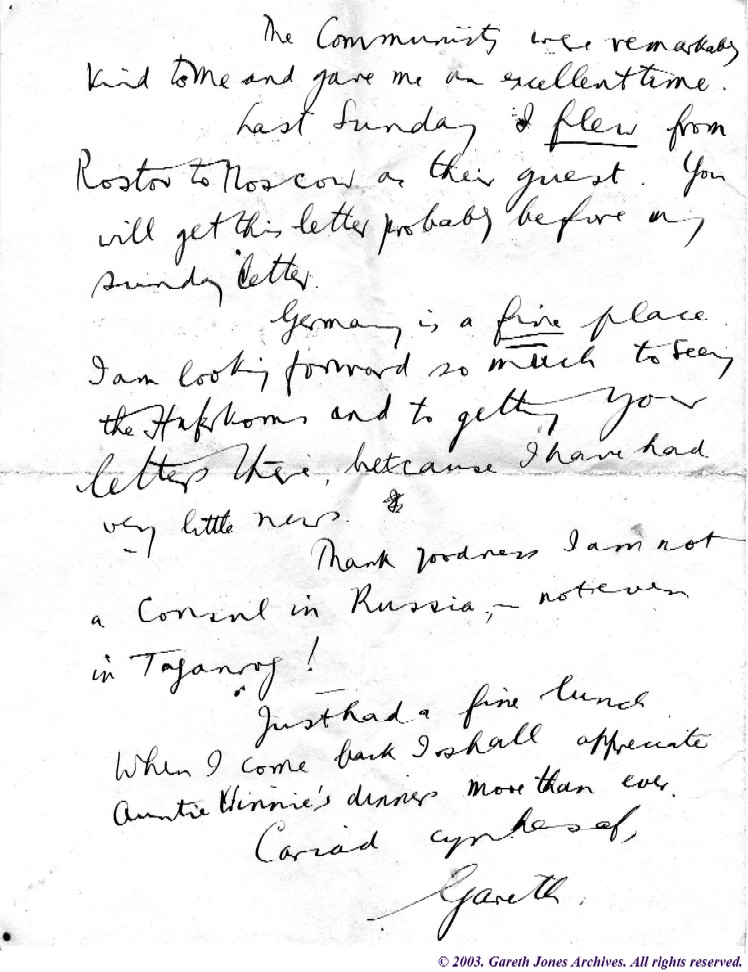 The Communists were remarkably
kind to me and gave me an excellent time.
Last Sunday I flew from
Rostov to Moscow as their guest. You
will get this letter probably before my
Sunday letter.
Germany is a fine place.
I am looking forward so much to seeing
the Haferkorns and to getting your
letters there, because I have had
very little news.
Thank goodness I am not
a Consul in Russia, – not even
in Taganrog!
Just had a fine lunch
When I come back I shall appreciate
Auntie Winnie's dinners more than ever.
Cariad cynhesaf,
Gareth.
© 2003. Gareth Jones Archives. All rights reserved.